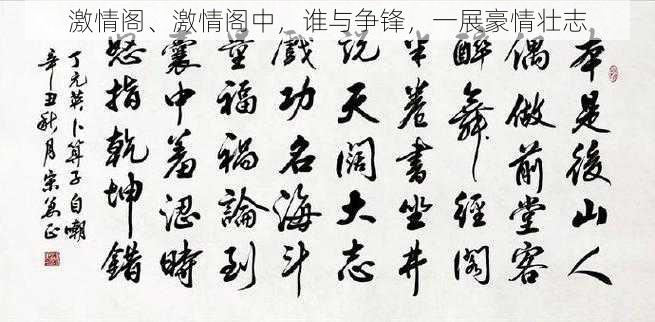 激情阁、激情阁中，谁与争锋，一展豪情壮志
本是後山人
偶做前堂客
醉舞經閣
半卷書坐井
説天闊大志
戲功名海斗
量福禍論到
囊中羞澀時
怒指乾坤錯
丁元英卜算子自嘲
辛丑秋月宋